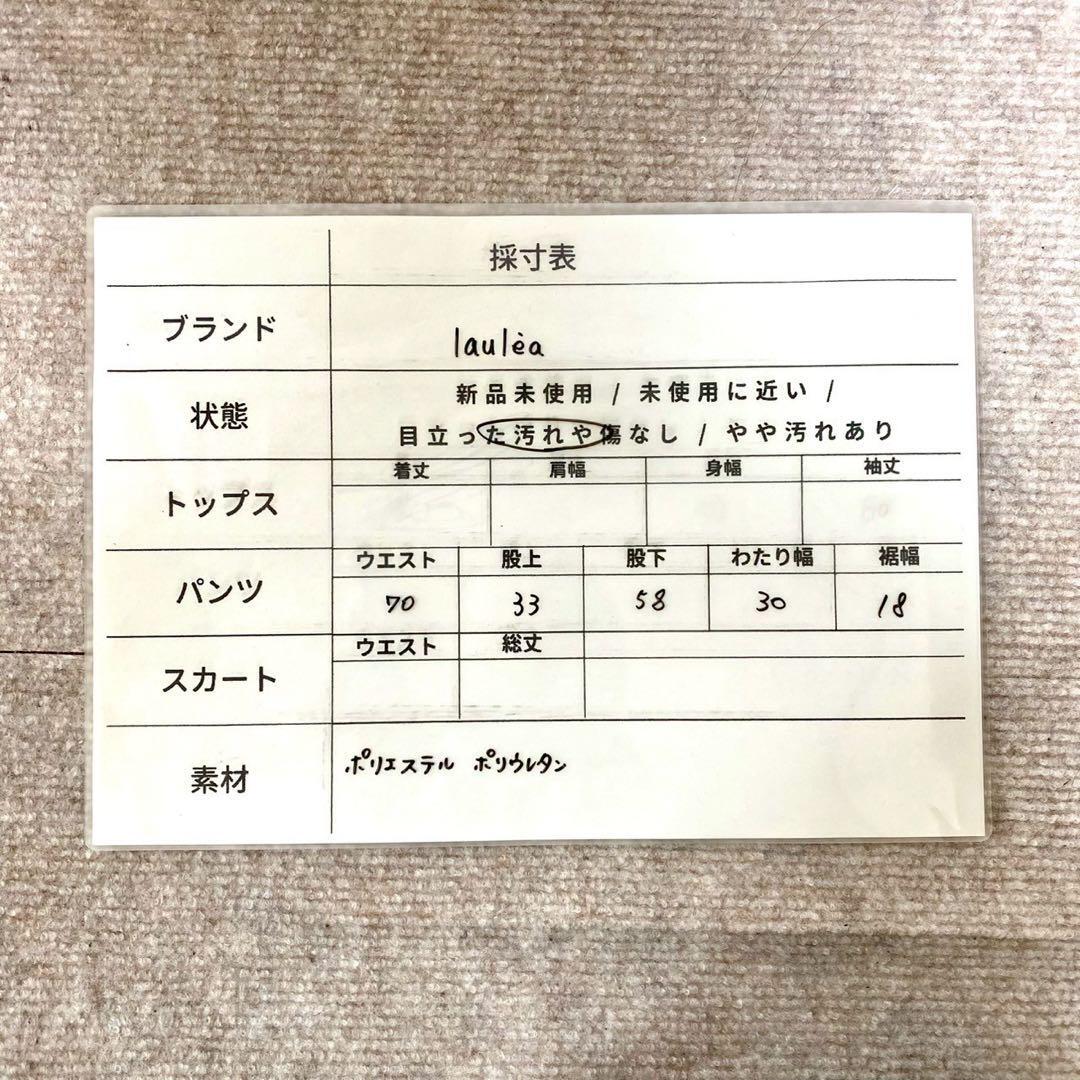 採寸表
ブランド laulėa
状態 新品未使用 / 未使用に近い /
目立った汚れや傷なし / やや汚れあり
トップス 着丈 肩幅 身幅 袖丈
パンツ ウエスト 股上 股下 わたり幅 裾幅
70 33 58 30 18
スカート ウエスト 総丈
素材 ポリエステル ポリウレタン